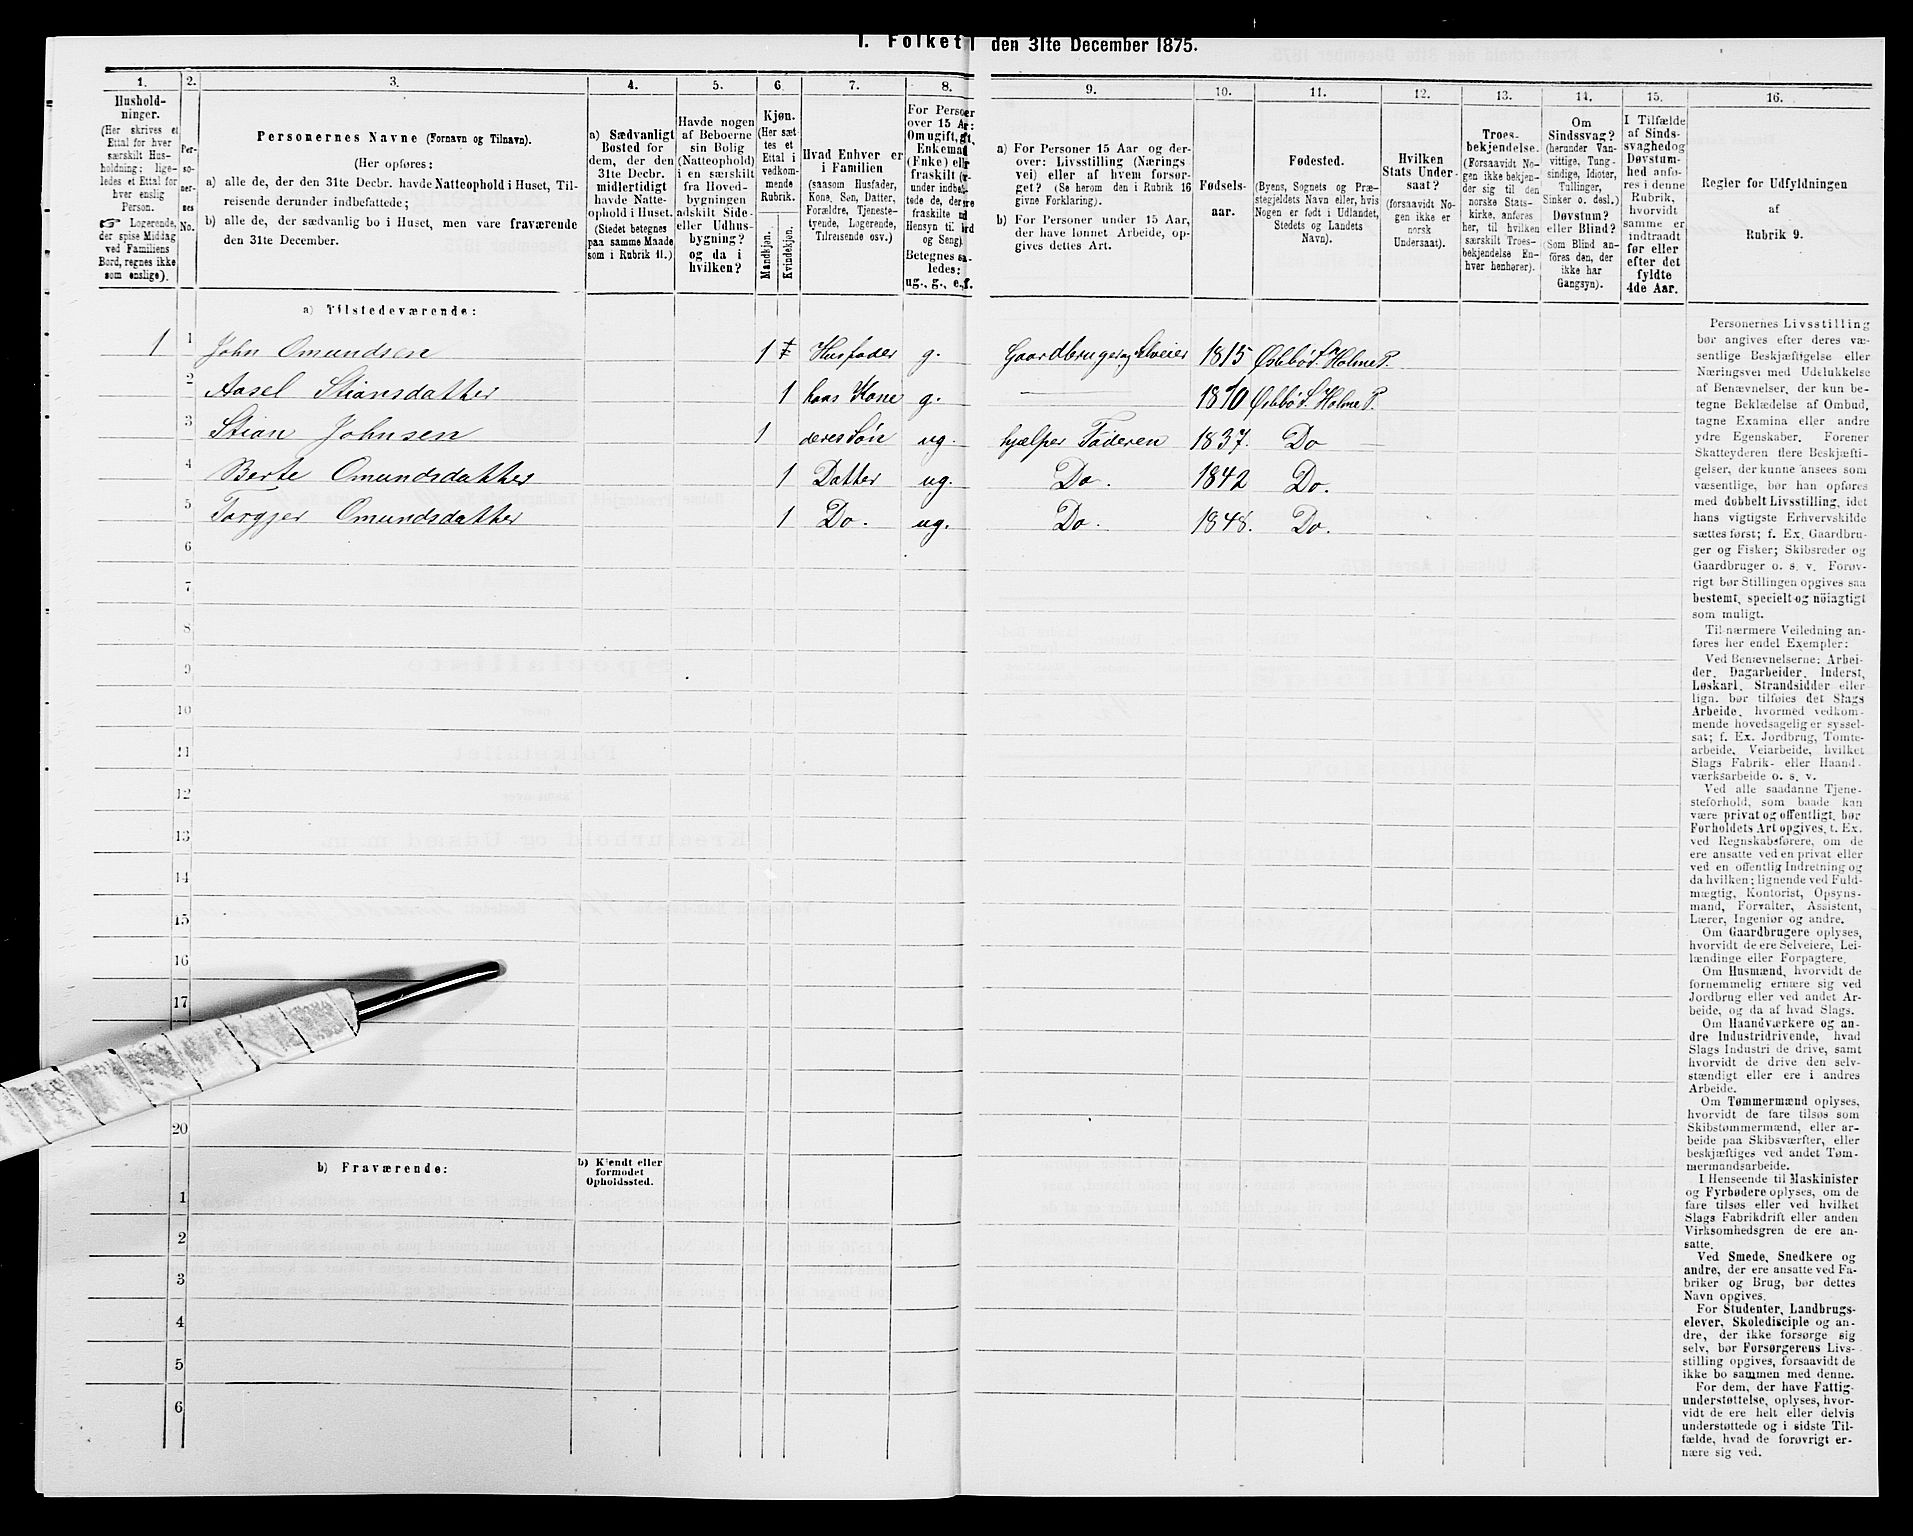 I. Folket den 31te December 1875.
1.
Hushold-
ninger.
(Her skrives et
Ettal for hver
særskilt Hus-
holdning; lige-
ledes et Ettal for
hver enslig
Person.
☞ Logerende,
der spise Middag
ved Familiens
Bord, regnes ikke
som enslige).
2.
Per-
so-
ner-
nes
No.
3.
Personernes Navne (Fornavn og Tilnavn).
(Her opføres:
a) alle de, der den 31te Decbr. havde Natteophold i Huset, Til-
reisende derunder indbefattede;
b) alle de, der sædvanlig bo i Huset, men vare fraværende
den 31te December.
4.
a) Sædvanligt
Bosted for
dem, der den
31te Decbr.
midlertidigt
havde Natte-
ophold i Huset.
(Stedet betegnes
paa samme Maade
som i Rubrik 11.)
5.
Havde nogen
af Beboerne
sin Bolig
(Natteophold)
i en særskilt
fra Hoved-
bygningen
adskilt Side-
eller Udhus-
bygning?
og da i
hvilken?
6
Kjøn.
(Her sæt-
tes et
Ettal i
vedkom-
mende
Rubrik.
Mandkjøn.
Kvindekjøn.
7.
Hvad Enhver er
i Familien
(saasom Husfader,
Kone, Søn, Datter,
Forældre, Tjeneste-
tyende, Logerende,
Tilreisende osv.)
8.
For Personer
over 15 Aar:
Om ugift, gift,
Enkemand
(Enke) eller
fraskilt
Betegnes saa-
ledes:
ug., g., e., f.
9.
a) For Personer 15 Aar og der-
over: Livsstilling (Nærings
vei) eller af hvem forsør-
get? (Se herom den i Rubrik 16
givne Forklaring).
b) For Personer under 15 Aar,
der have lønnet Arbeide, op-
gives dettes Art.
10.
Fødsels-
aar.
11.
Fødested.
(Byens, Sognets og Præ-
stegjeldets Navn eller, hvis
Nogen er født i Udlandet,
Stedets og Landets
Navn).
12.
Hvilken
Stats Under-
saat?
(forsaavidt No-
gen ikke er
norsk
Undersaat).
13.
Troes-
bekjendelse.
(Forsaavidt No-
gen ikke bekjen-
der sig til den
norske Stats-
kirke, anføres
her, til hvilken
særskilt Troes-
bekjendelse En-
hver henhører).
14.
Om
Sindssvag?
(herunder Van-
vittige, Tung-
sindige, Idioter,
Tullinger,
Sinker o. desl.)
Døvstum?
eller Blind?
(Som Blind an-
føres den, der
ikke har
Gangsyn).
15.
I Tilfælde
af Sinds-
svaghed og
Døvstum-
hed anfø-
res i denne
Rubrik,
hvorvidt
samme er
indtraadt
før eller
efter det
fyldte
4de Aar.
16.
Regler for Udfyldningen
af
Rubrik 9.
a) Tilstedeværende:
1 1 John Omundsen 1 Husfader g. Gaardbruger og Selveier 1815 Øslebø S. Holme P.
2 Aasel Stiansdatter 1 hans Kone g. 1810 Øslebø S. Holme P.
3 Stian Johnsen 1 deres Søn ug. hjælper Faderen 1837. Do
4 Berte Omundsdatter 1 Datter ug. Do. 1842 Do.
5 Torgjer Omundsdatter 1 Do. ug. Do. 1848. Do.
6
7
8
9
10
11
12
13
14
15
16
17
20
b) Fraværende:
b) Kjendt eller
formodet
Opholdssted.
1
2
3
4
5
6
Personernes Livsstilling
bør angives efter deres væ-
sentlige Beskjæftigelse eller
Næringsvei med Udelukkelse
af Benævnelser, der kun be-
tegne Beklædelse af Ombud,
tagne Examina eller andre
ydre Egenskaber. Forener
Skatteyderen flere Beskjæfti-
gelser, der kunne ansees som
væsentlige, bør han opføres
med dobbelt Livsstilling, idet
hans vigtigste Erhvervskilde
sættes først; f. Ex. Gaardbru-
ger og Fisker; Skibsreder og
Gaardbruger o. s. v. Forøv-
rigt bør Stillingen opgives saa
bestemt, specielt og nöiagtigt
som muligt.
Til nærmere Veiledning an-
føres her endel Exempler:
Ved Benævnelserne: Arbei-
der, Dagarbeider, Inderst,
Løskarl, Strandsidder eller
lign. bør tilføies det Slags
Arbeide, hvormed vedkom-
mende hovedsagelig er syssel-
sat; f. Ex. Jordbrug, Tomte-
arbeide, Veiarbeide, hvilket
Slags Fabrik- eller Haand-
værksarbeide o. s. v.
Ved alle saadanne Tjene-
steforhold, som baade kan
være privat og offentligt, bør
Forholdets Art opgives, t. Ex.
ved Regnskabsførere, om de
ere ansatte ved en privat eller
ved en offentlig Indretning og
da hvilken; lignende ved Fuld-
mægtig, Kontorist, Opsyns-
mand, Forvalter, Assistent,
Lærer, Ingeniør og andre.
Om Gaardbrugere oplyses,
hvorvidt de ere Selveiere, Lei-
lændinge eller Forpagtere.
Om Husmænd, hvorvidt de
fornemmelig ernære sig ved
Jordbrug eller ved andet Ar-
beide, og da af hvad Slags.
Om Haandværkere og an-
dre Industridrivende, hvad
Slags Industri de drive, samt
hvorvidt de drive den selv-
stændigt eller ere i andres
Arbeide.
Om Tømmermænd oplyses,
hvorvidt de fare tilsøs som
Skibstømmermænd, eller ar-
beide paa Skibsværfter, eller
beskjæftiges ved andet Tøm-
mermandsarbeide.
I Henseende til Maskinister
og Fyrbødere oplyses, om de
fare tilsøs eller ved hvilket
Slags Fabrikdrift eller anden
Virksomhedsgren de ere an-
satte.
Ved Smede, Snedkere og
andre, der ere ansatte ved Fa-
briker og Brug, bør dettes
Navn opgives.
For Studenter, Landbrugs-
elever, Skoledisciple og an-
dre, der ikke forsørge sig
selv, bør Forsørgerens Livs-
stilling opgives, forsaavidt de
ikke bo sammen med denne.
For dem, der have Fattig-
understøttelse, oplyses, hvor-
vidt de ere helt eller delvis
understøttede og i sidste Til-
fælde, hvad de forøvrigt er-
nære sig ved.